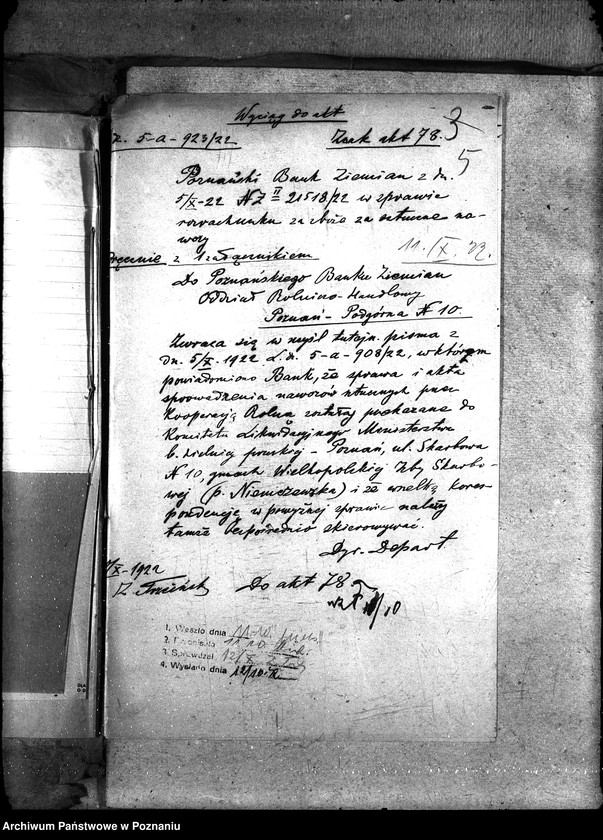 Wyciąg do akt
5-a-923/22 Znak akt 78. 3
5
Poznański Bank Ziemian z dn.
5/X-22 NZ II 21518/22 w sprawie
rozrachunku za zboże za sztuczne na-
wozy
11. IX. 22.
ręcznie z 1 załącznikiem
Do Poznańskiego Banku Ziemian
Oddział Rolniczo-Handlowy
Poznań - Podgórna N 10.
Zwraca się w myśl tutejsz. pisma z
dn. 5/X. 1922 L. dz. 5-a-908/22, w którem
powiadomiono Bank, że sprawa i akta
sprowadzenia nawozów sztucznych przez
Kooperację Rolną zostały przekazane do
Komitetu Likwidacyjnego Ministerstwa
b. dzielnicy pruskiej - Poznań, ul. Skarbowa
N 10, gmach Wielkopolskiej Izby Skarbo-
wej (p. Niemczewska) i że wszelką kores-
pondencję w powyższej sprawie należy
tamże bezpośrednio skierowywać.
Dyr. Depart.
/X-1922
Do akt 78
1. Weszło dnia 11.10.
2.
3. Sprawdzał 12/X
4. Wysłano dnia 12/10. R.
Archiwum Państwowe w Poznaniu